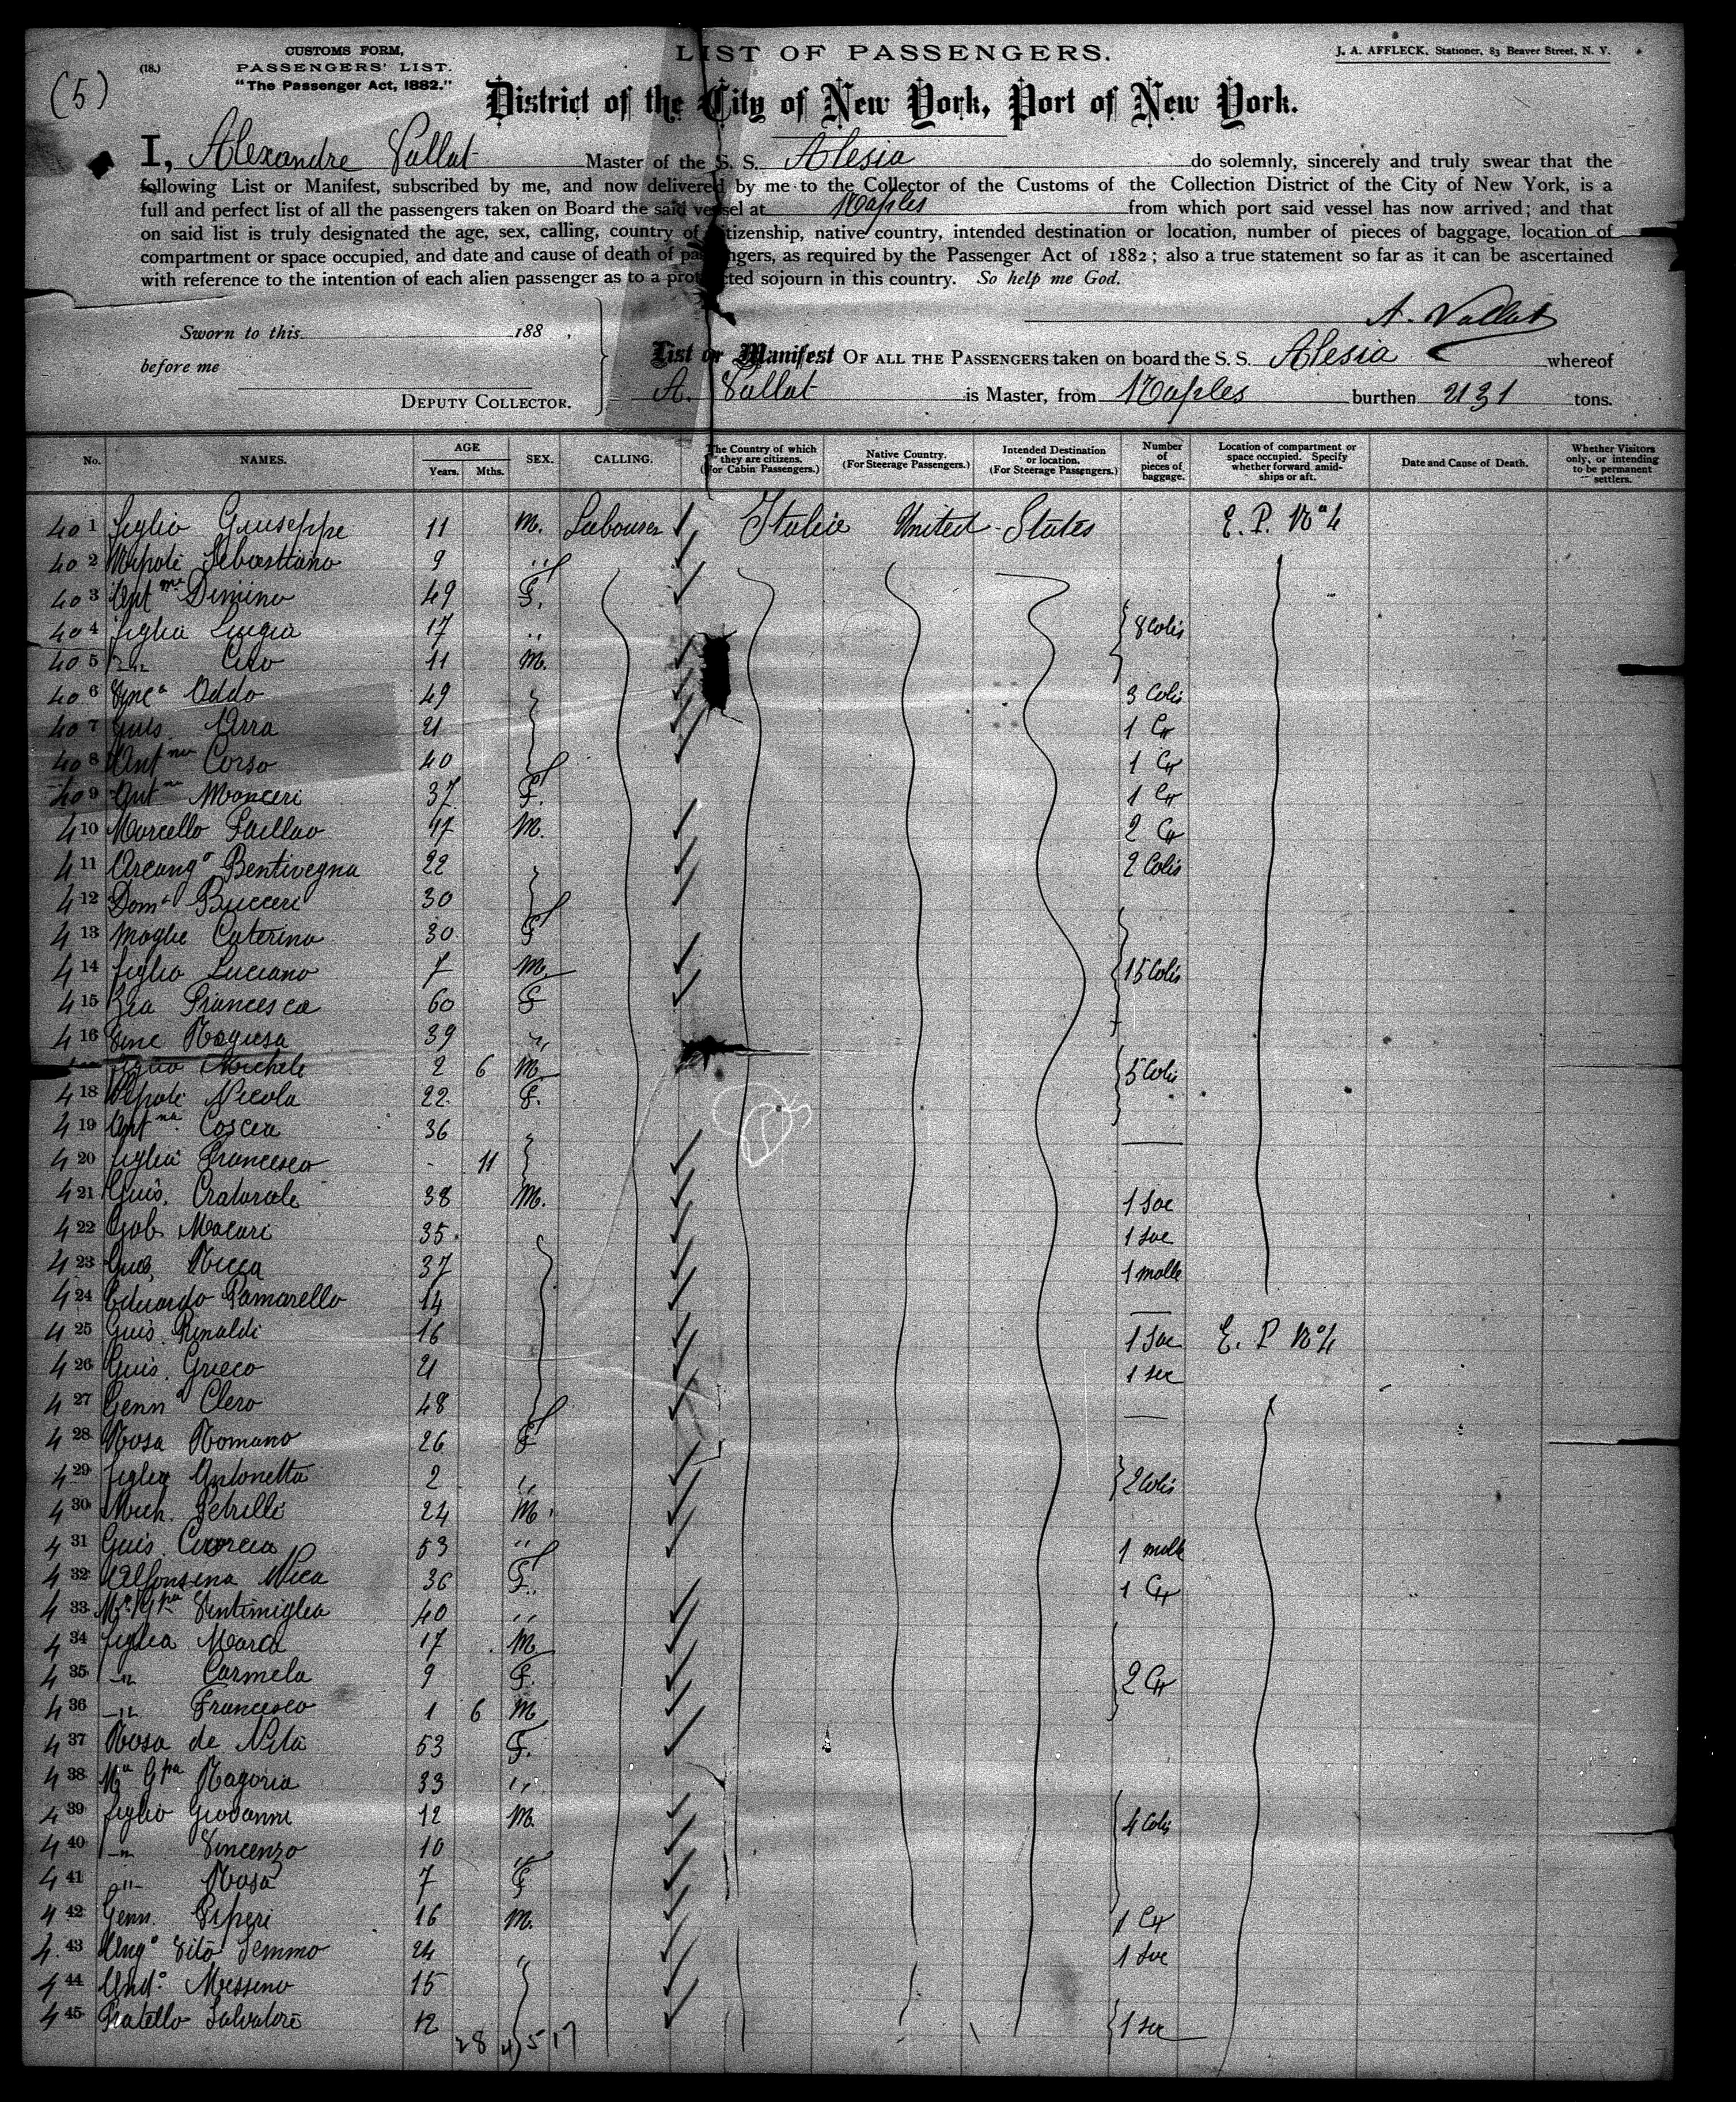 (5)
(18.)
CUSTOMS FORM,
PASSENGERS' LIST.
"The Passenger Act, 1882."
LIST OF PASSENGERS.
J. A. AFFLECK, Stationer, 83 Beaver Street, N. Y.
District of the City of New York, Port of New York.
I, Alexandre Vallat Master of the S. S. Alesia do solemnly, sincerely and truly swear that the
following List or Manifest, subscribed by me, and now delivered by me to the Collector of the Customs of the Collection District of the City of New York, is a
full and perfect list of all the passengers taken on Board the said vessel at Naples from which port said vessel has now arrived; and that
on said list is truly designated the age, sex, calling, country of citizenship, native country, intended destination or location, number of pieces of baggage, location of
compartment or space occupied, and date and cause of death of passengers, as required by the Passenger Act of 1882; also a true statement so far as it can be ascertained
with reference to the intention of each alien passenger as to a protracted sojourn in this country. So help me God.
A. Vallat
Sworn to this 188 ,
before me
DEPUTY COLLECTOR.
List or Manifest OF ALL THE PASSENGERS taken on board the S. S. Alesia whereof
A. Vallat is Master, from Naples burthen 2131 tons.
No. NAMES. AGE Years. Mths. SEX. CALLING. The Country of which they are citizens. (For Cabin Passengers.) Native Country. (For Steerage Passengers.) Intended Destination or location. (For Steerage Passengers.) Number of pieces of baggage. Location of compartment or space occupied. Specify whether forward amidships or aft. Date and Cause of Death. Whether Visitors only, or intending to be permanent settlers.
40 1 figlio Giuseppe 11 M. Labourer Italie United States E. P. No 4
40 2 Nipote Sebastiano 9 "
40 3 Ant na Dimino 49 F.
40 4 figlia Luigia 17 " 8 Colis
40 5 " Ciro 11 M.
40 6 Vinc Oddo 49 3 Colis
40 7 Guis. Arra 21 1 Cr
40 8 Ant no Corso 40 1 Cr
40 9 Ant na Monceri 37 F. 1 Cr
4 10 Marcello 47 M. 2 Cr
4 11 Arcang o Bentivegna 22 2 Colis
4 12 Dom o Bucceri 30
4 13 Moglie Caterina 30 F
4 14 figlio Luciano 7 M. 15 Colis
4 15 Zia Francesca 60 F
4 16 Vinc Ragusa 39 "
figlio Michele 2 6 M. 5 Colis
4 18 Nipote Nicola 22 F.
4 19 Ant na Coscia 36
4 20 figlia Francesca 11
4 21 Guis. 38 M. 1 Sac
4 22 Gab Macari 35 1 sac
4 23 Guis. Ricca 37 1 malle
4 24 Eduardo Pamarello 14
4 25 Guis. Rinaldi 16 1 Sac E. P No 4
4 26 Guis. Grieco 21 1 sac
4 27 Genn o Clero 48
4 28 Rosa Romano 26 F
4 29 figlia Antonetta 2 " 2 Colis
4 30 Mich. Petrilli 24 M.
4 31 Guis. 53 " 1 malle
4 32 Alfonsina Nica 36 F. 1 Cr
4 33 Ma Gpa Ventimiglia 40 "
4 34 figlia Marca 17 M
4 35 " Carmela 9 F. 2 Cr
4 36 " Francesco 1 6 M
4 37 Rosa de Nita 53 F.
4 38 Ma Gpa Ragoria 33 "
4 39 figlio Giovanni 12 M. 4 Colis
4 40 " Vincenzo 10 "
4 41 " Rosa 7 F
4 42 Genn. Piperi 16 M. 1 Cr
4 43 Ang o Vito Jemmo 24 " 1 Sac
4 44 And o Messino 15
4 45 Fratello Salvatore 12 1 sac
28 517